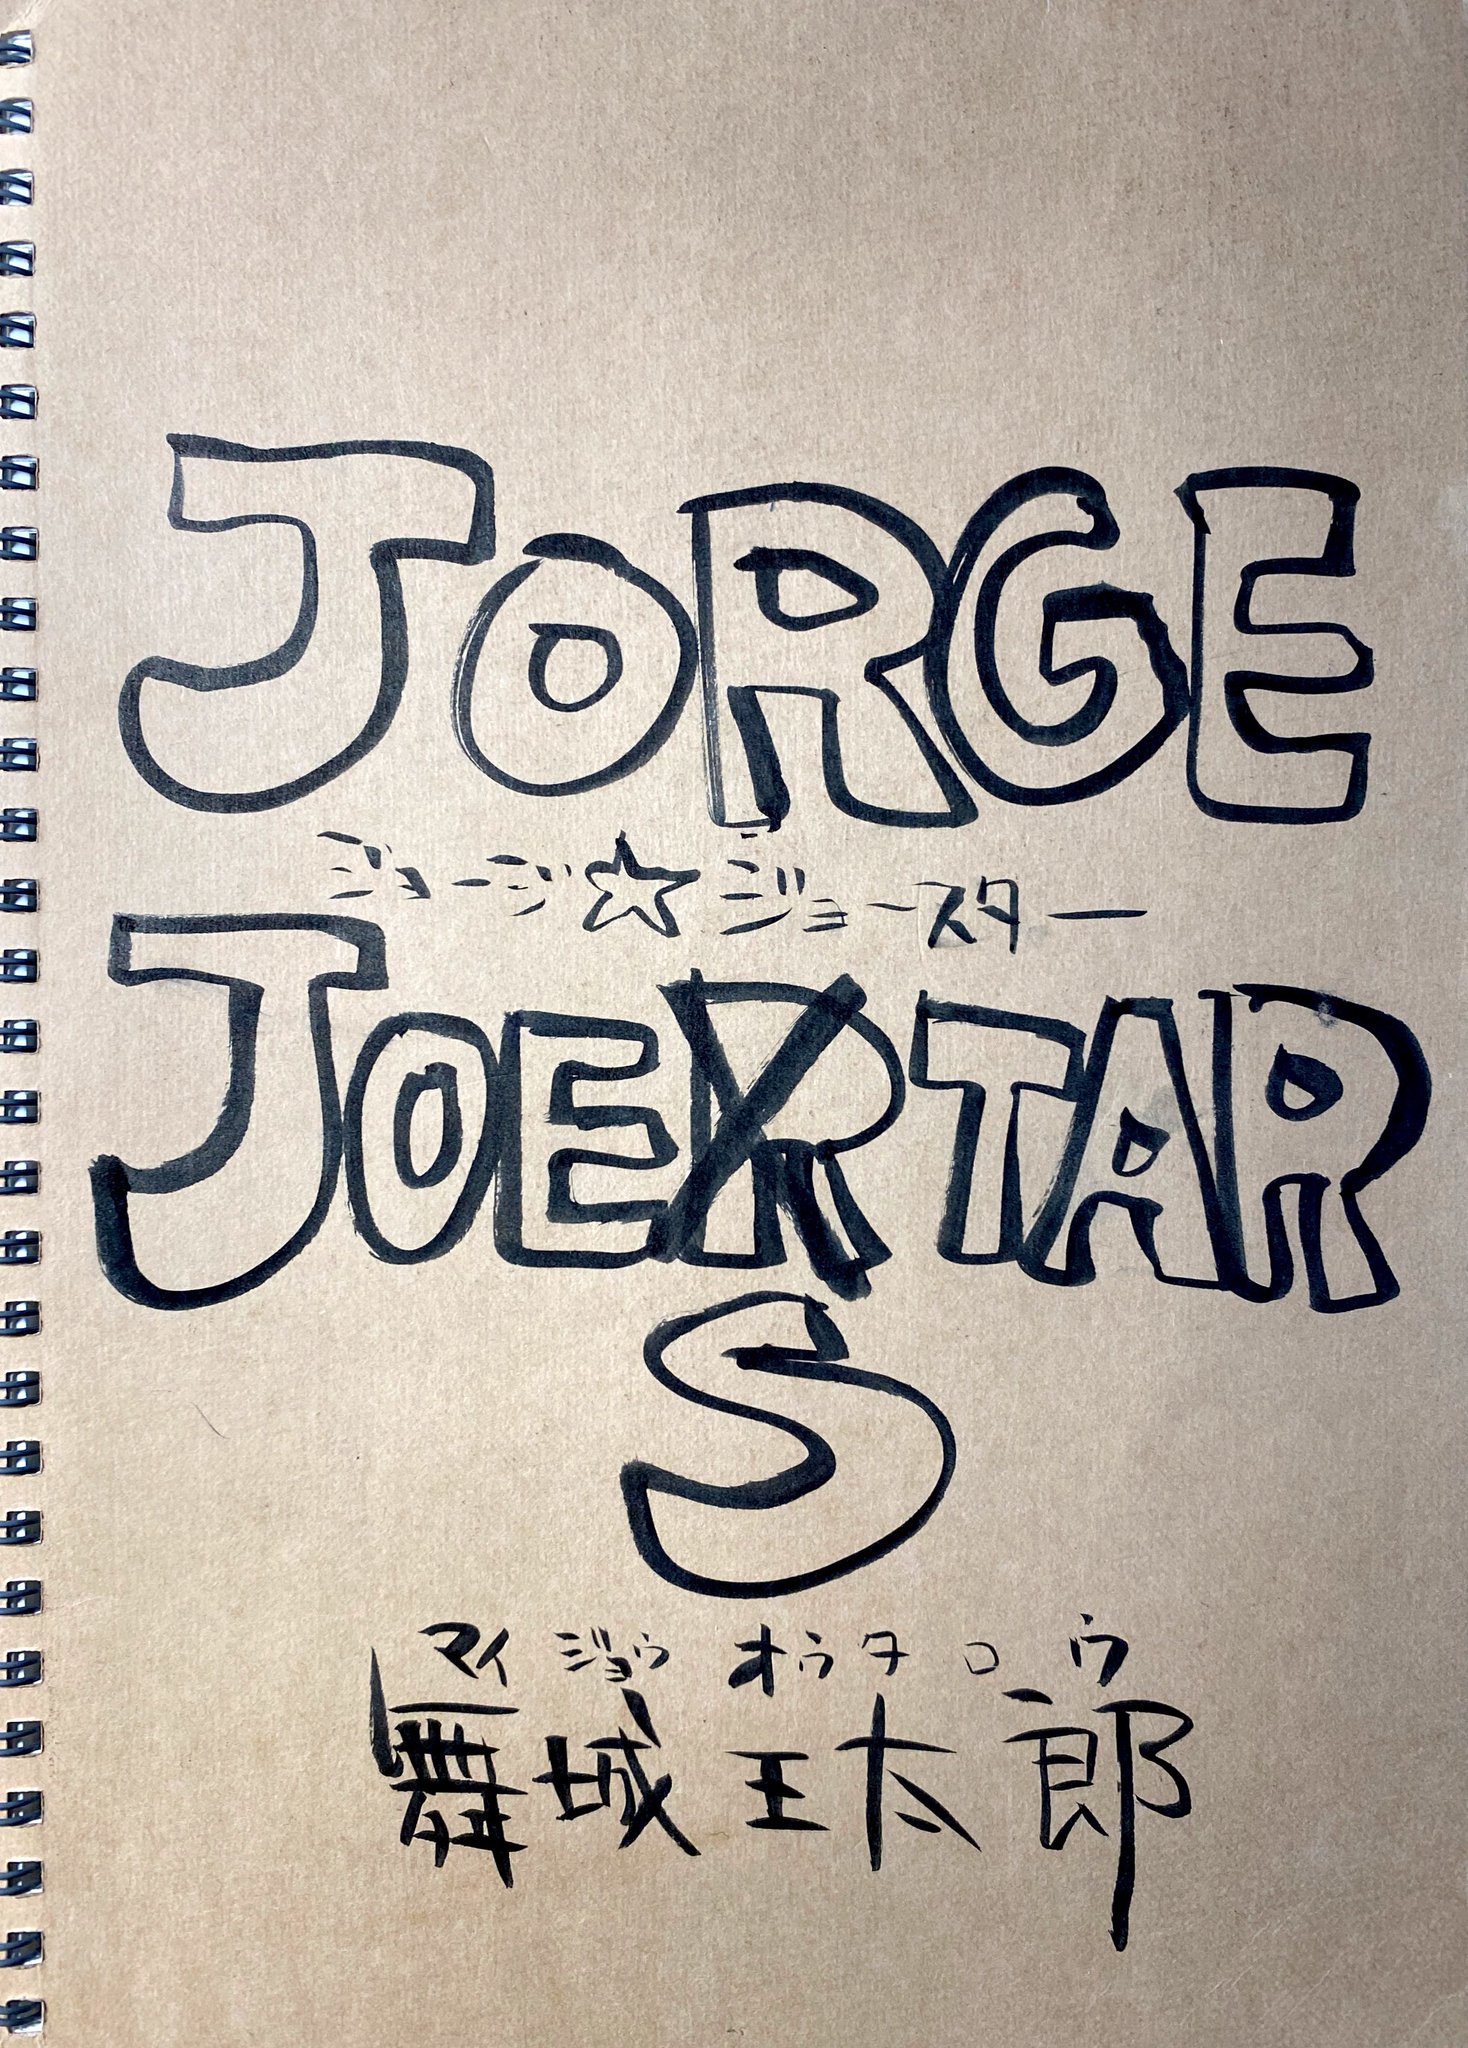 JORGE
ジョージ☆ジョースター
JOERTAR
S
マイジョウ オウタロウ
舞城王太郎